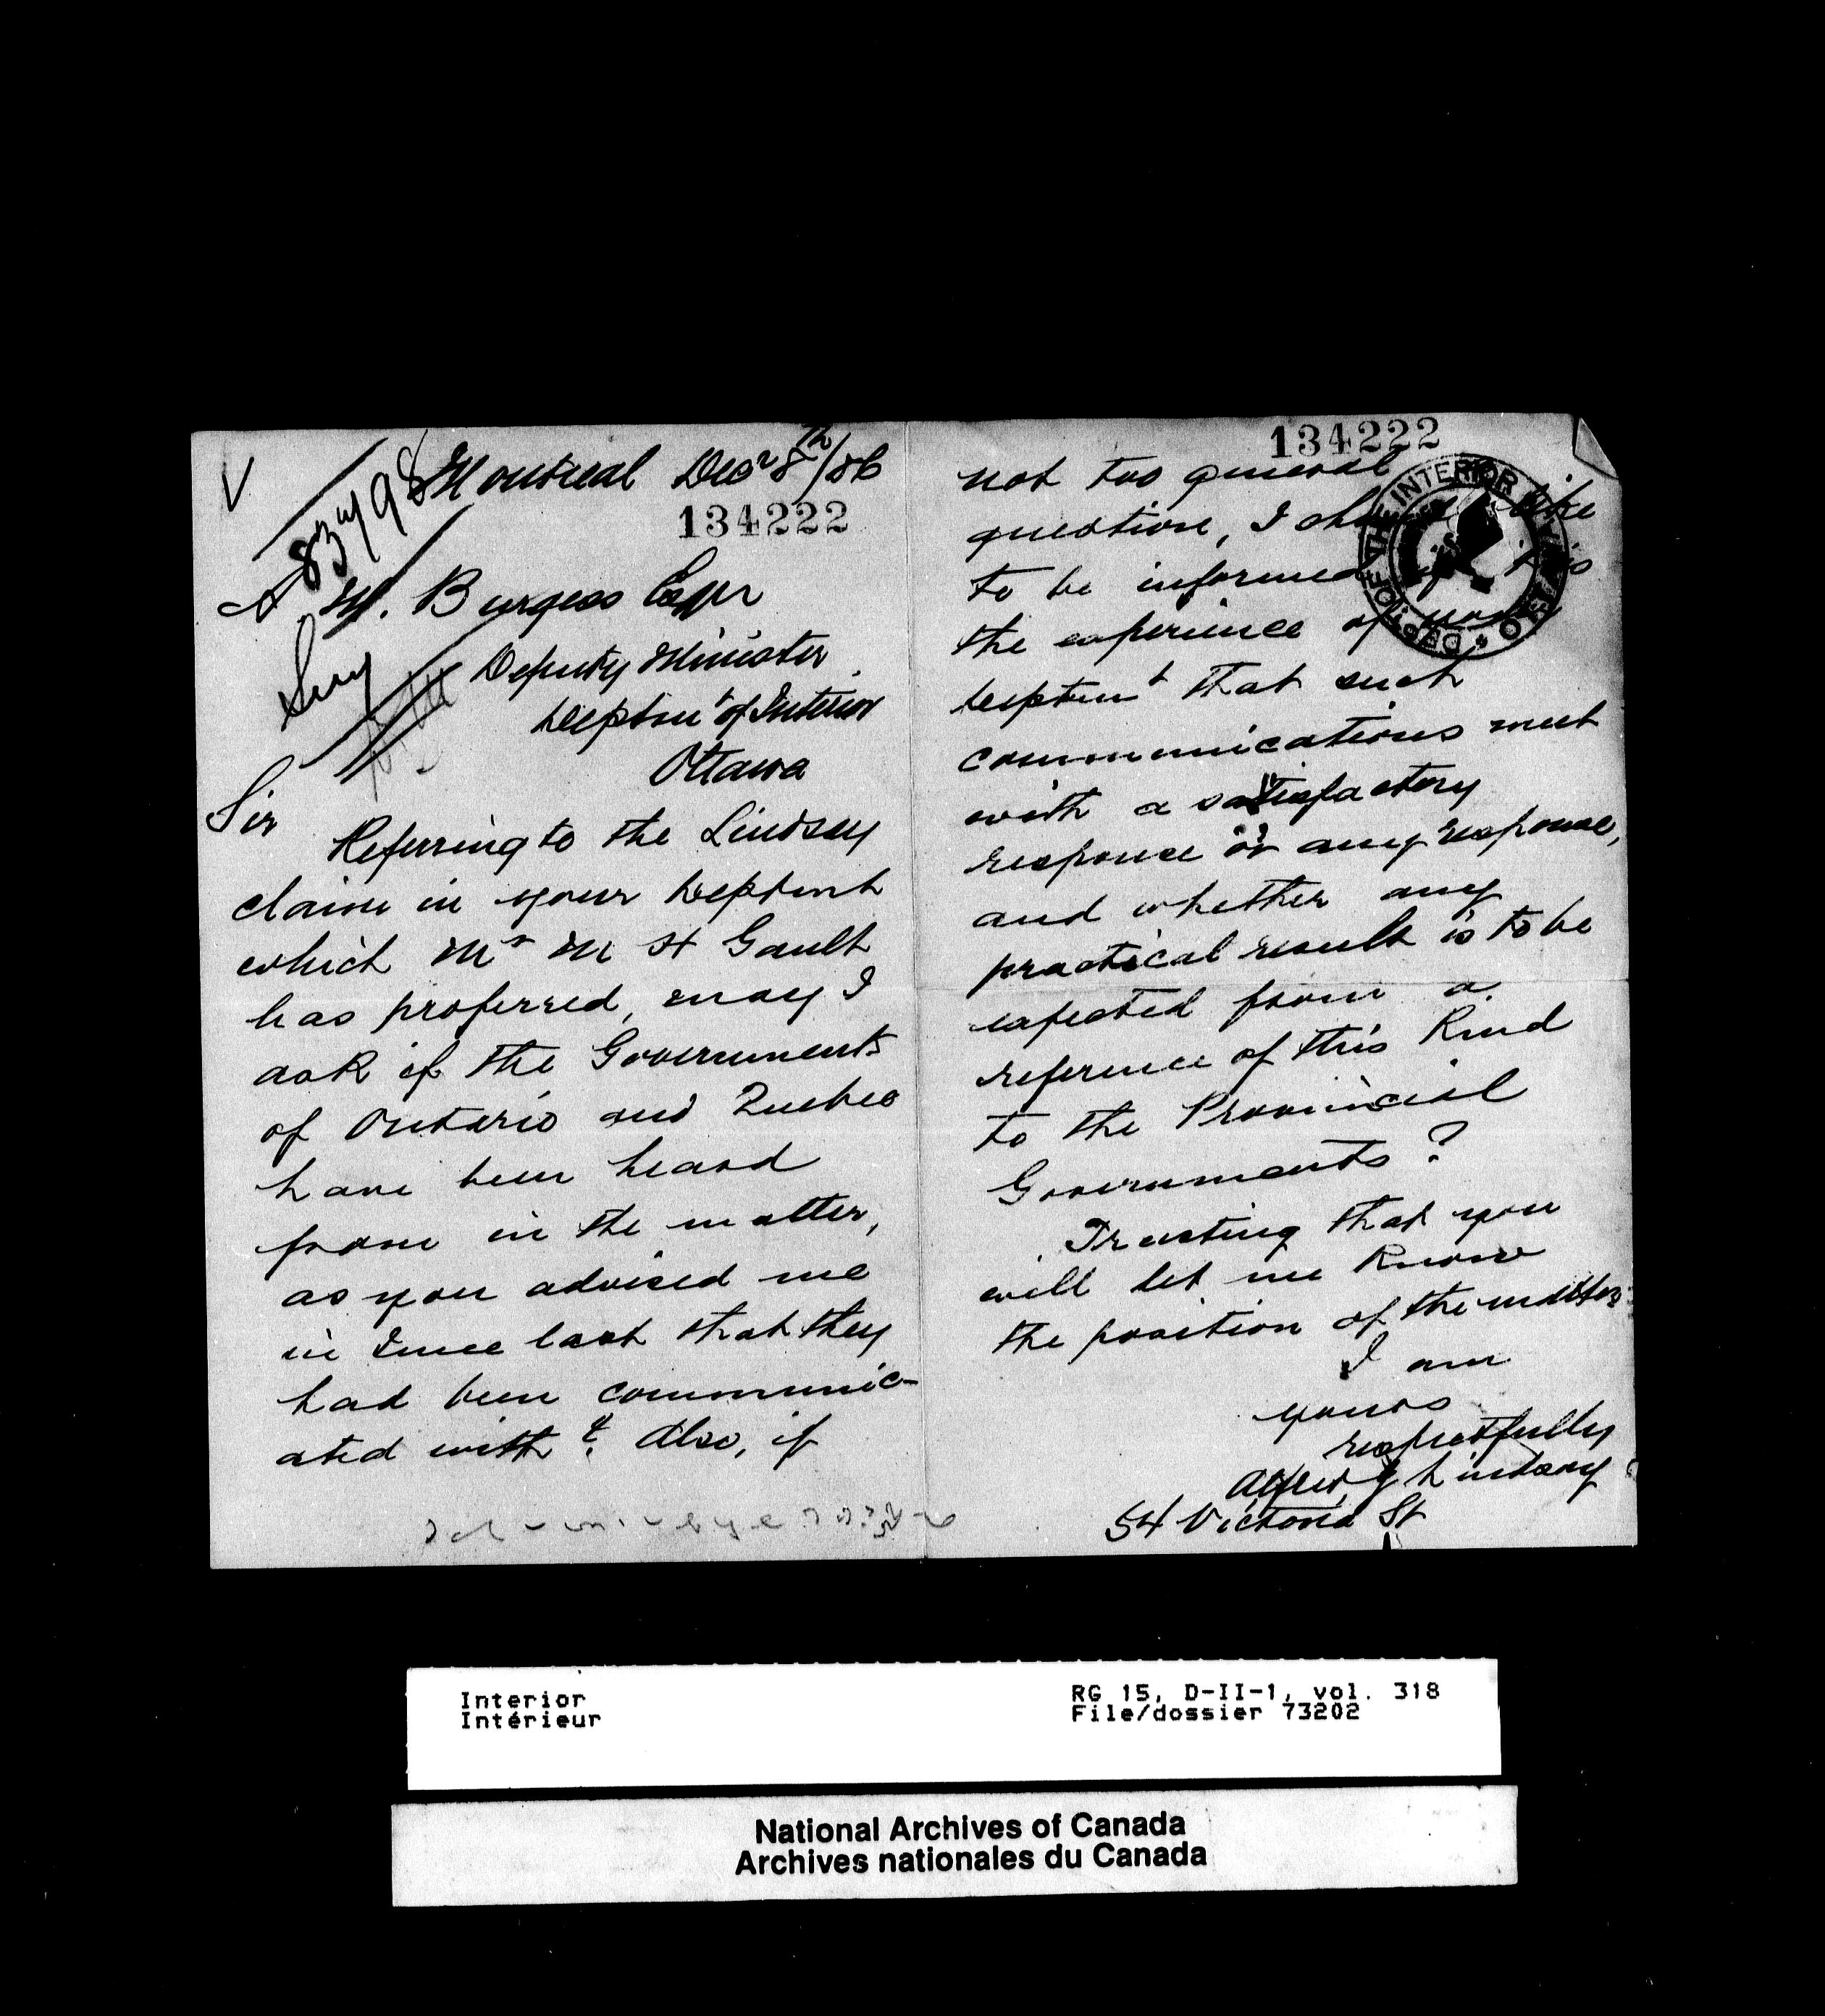 Montreal Decr 8th/86
134222
A M. Burgess Esqr
Deputy Minister
Deptmt of Interior
Ottawa
Sir
Referring to the Lindsay
claim in your Deptmt
which Mr M H Gault
has proferred, may I
ask if the Governments
of Ontario and Quebec
have been heard
from in the matter,
as you advised me
in June last that they
had been communic-
ated with? Also, if
134222
not too general a
question, I should like
to be informed if it is
the experience of your
Deptmt that such
communications meet
with a satisfactory
response or any response,
and whether any
practical result is to be
expected from a
reference of this kind
to the Provincial
Governments?
Trusting that you
will let me know
the position of the matter
I am
yours
respectfully
Alfred Lindsay
54 Victoria St
DEPT. OF THE INTERIOR OTTAWA
Interior
Intérieur
RG 15, D-II-1, vol. 318
File/dossier 73202
National Archives of Canada
Archives nationales du Canada